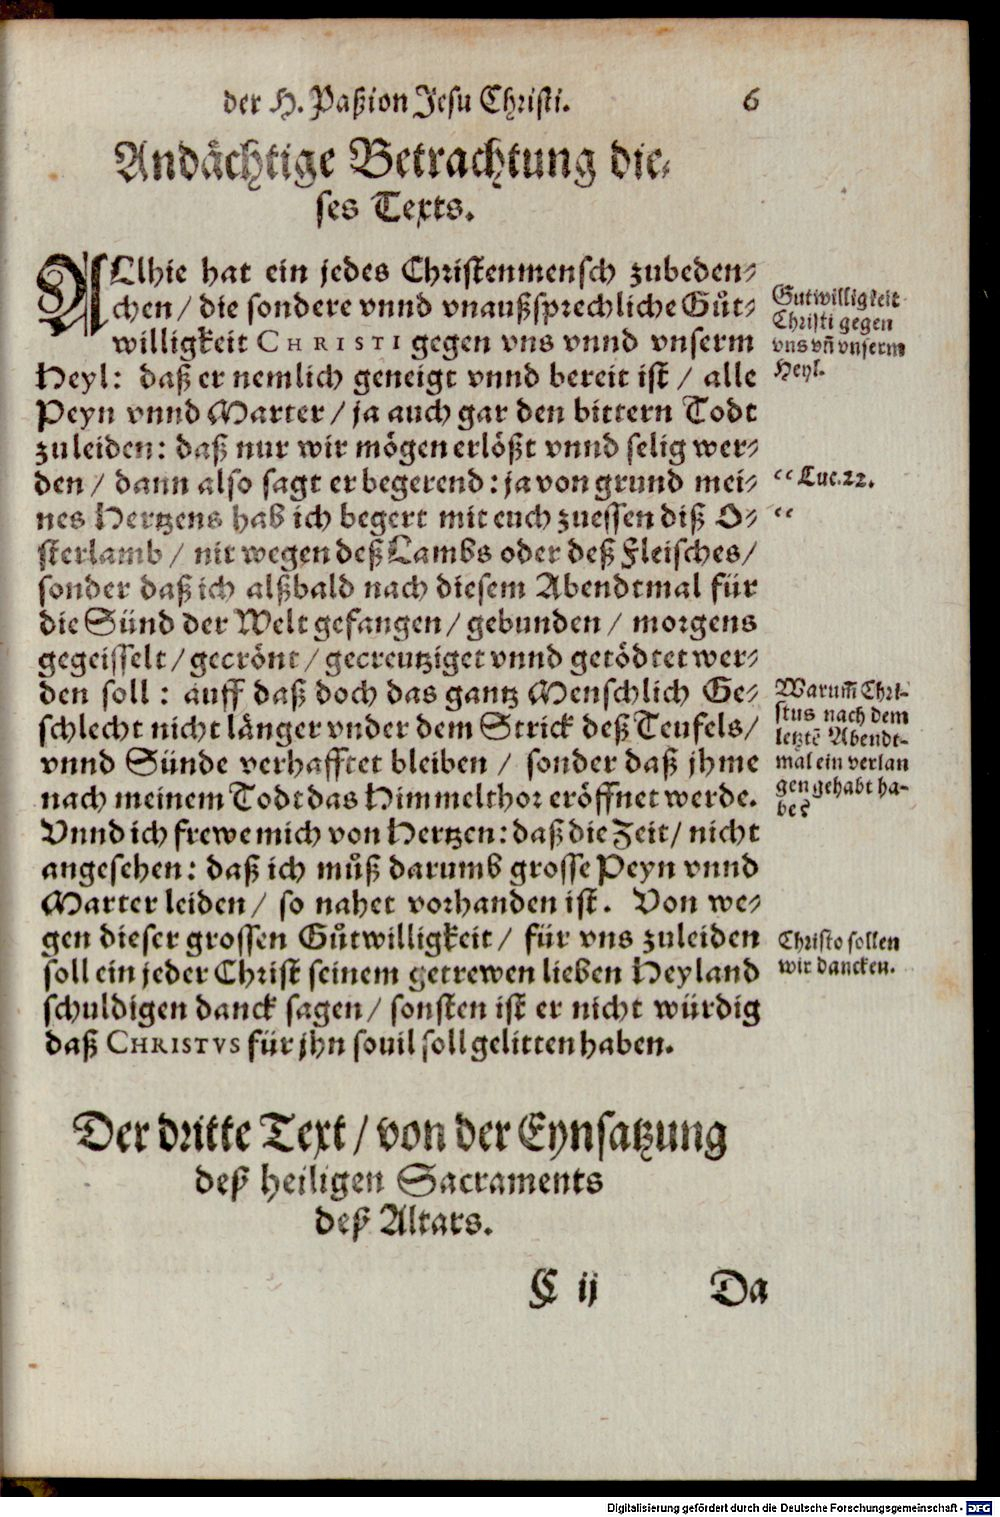 der H. Paßion Jesu Christi. 6
Andächtige Betrachtung die-
ses Texts.
ALlhie hat ein jedes Christenmensch zubeden-
chen / die sondere vnnd vnaußsprechliche Gůt-
willigkeit CHRISTI gegen vns vnnd vnserm
Heyl: daß er nemlich geneigt vnnd bereit ist / alle
Peyn vnnd Marter / ja auch gar den bittern Todt
zuleiden: daß nur wir mögen erlößt vnnd selig wer-
den / dann also sagt er begerend: ja von grund mei-
nes Hertzens hab ich begert mit euch zuessen diß O-
sterlamb / nit wegen deß Lambs oder deß Fleisches /
sonder daß ich alßbald nach diesem Abendtmal für
die Sünd der Welt gefangen / gebunden / morgens
gegeisselt / gecrönt / gecreutziget vnnd getödtet wer-
den soll: auff daß doch das gantz Menschlich Ge-
schlecht nicht länger vnder dem Strick deß Teufels /
vnnd Sünde verhafftet bleiben / sonder daß jhme
nach meinem Todt das Himmelthor eröffnet werde.
Vnnd ich frewe mich von Hertzen: daß die Zeit / nicht
angesehen: daß ich můß darumb grosse Peyn vnnd
Marter leiden / so nahet vorhanden ist. Von we-
gen dieser grossen Gůtwilligkeit / für vns zuleiden
soll ein jeder Christ seinem getrewen lieben Heyland
schuldigen danck sagen / sonsten ist er nicht würdig
daß CHRISTVS für jhn souil soll gelitten haben.
Gutwilligkeit
Christi gegen
vns vñ vnserm
Heyl.
“ Luc.22.
“
Warum̃ Chri-
stus nach dem
letztẽ Abendt-
mal ein verlan
gen gehabt ha-
be?
Christo sollen
wir dancken.
Der dritte Text / von der Eynsatzung
deß heiligen Sacraments
deß Altars.
C ij Da
Digitalisierung gefördert durch die Deutsche Forschungsgemeinschaft - DFG